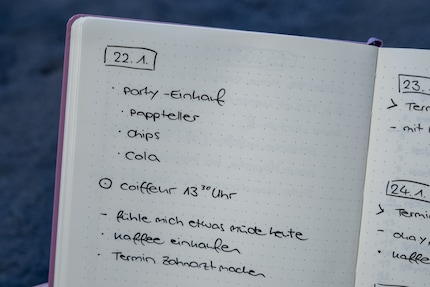 22.1.
· Party-Einkauf
· Pappteller
· Chips
· Cola
⊙ Coiffeur 13³⁰ Uhr
- fühle mich etwas müde heute
· Kaffee einkaufen
· Termin Zahnarzt machen
23.
> Term
- mit
24.1.
> Termi
- okay
· Kaffe